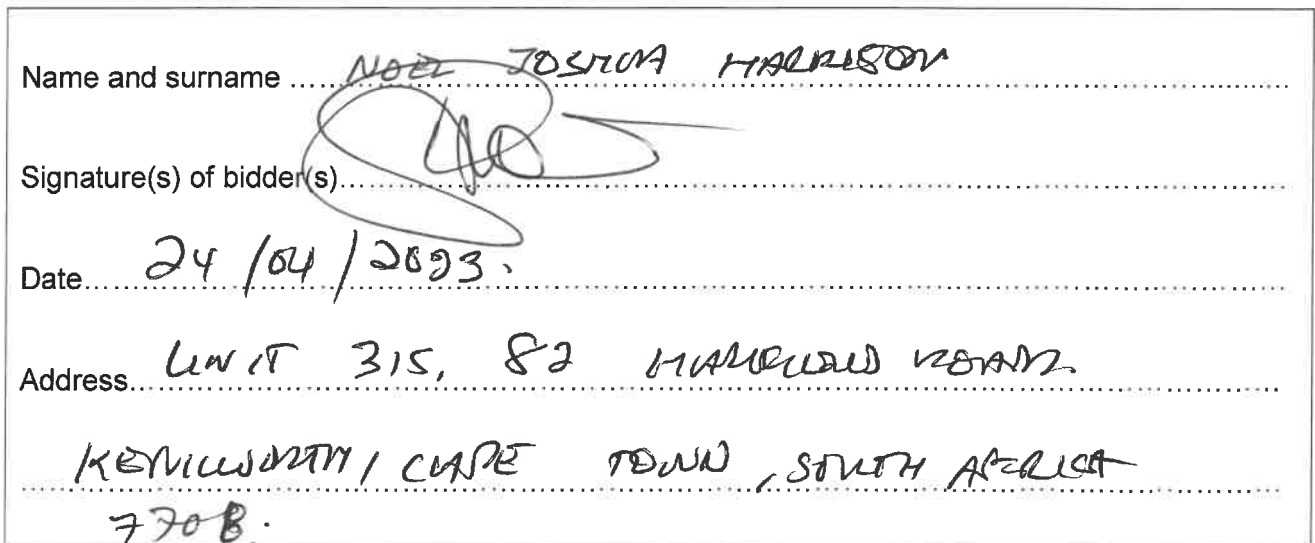 Name and surname NOEL JOSHUA HARRISON
Signature(s) of bidder(s)
Date 24/04/2023.
Address UNIT 315, 82
KENILWORTH, CAPE TOWN, SOUTH AFRICA
7708.